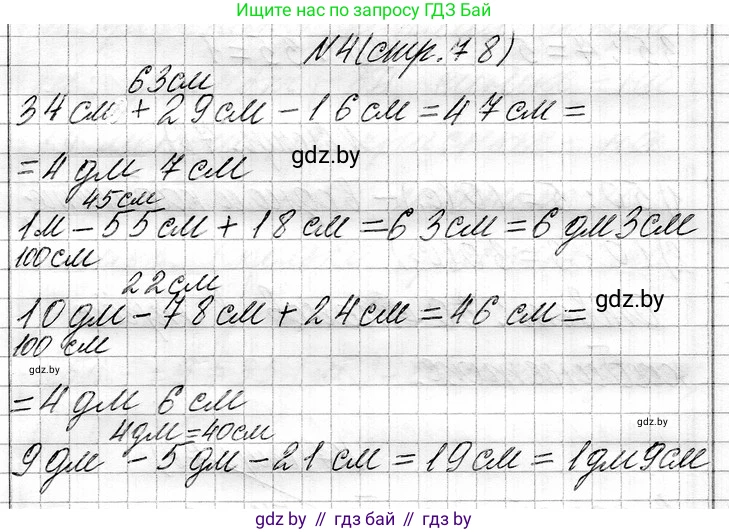 Ищите нас по запросу ГДЗ Бай
N4(стр.78)
63см
34см + 29см - 16см = 47см =
gdz.by
= 4 дм 7см
45см
1м - 55см + 18см = 63см = 6дм3см
100см
22см
gdz.by
10дм - 78см + 24см = 46см =
100 см
gdz.by
= 4 дм 6 см
gdz.by
4дм = 40см
9дм - 5дм - 21см = 19см = 1дм9см
gdz.by // гдз бай // gdz.by